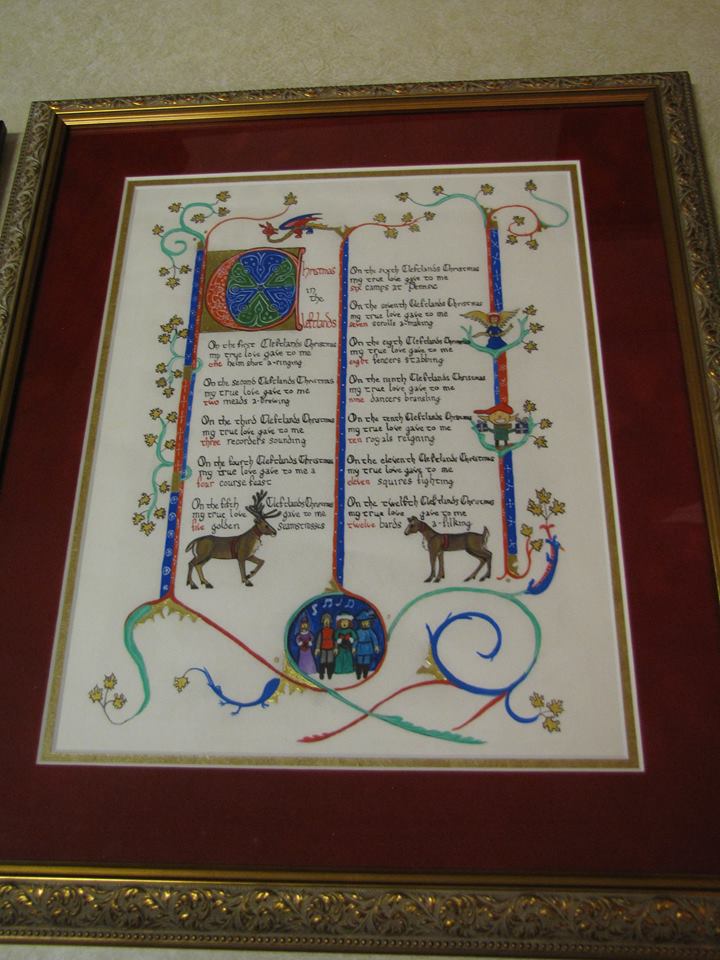 Christmas
in
the
Cleftlands
On the first Cleftlands Christmas
my true love gave to me
one helm shot a-ringing
On the second Cleftlands Christmas
my true love gave to me
two meads a-brewing
On the third Cleftlands Christmas
my true love gave to me
three recorders sounding
On the fourth Cleftlands Christmas
my true love gave to me a
four course feast
On the fifth Cleftlands Christmas
my true love gave to me
five golden seamstresses
On the sixth Cleftlands Christmas
my true love gave to me
six camps at Pennsic
On the seventh Cleftlands Christmas
my true love gave to me
seven scrolls a-making
On the eigth Cleftlands Christmas
my true love gave to me
eight fencers stabbing
On the ninth Cleftlands Christmas
my true love gave to me
nine dancers bransling
On the tenth Cleftlands Christmas
my true love gave to me
ten royals reigning
On the eleventh Cleftlands Christmas
my true love gave to me
eleven squires fighting
On the twelfth Cleftlands Christmas
my true love gave to me
twelve bards a-filking